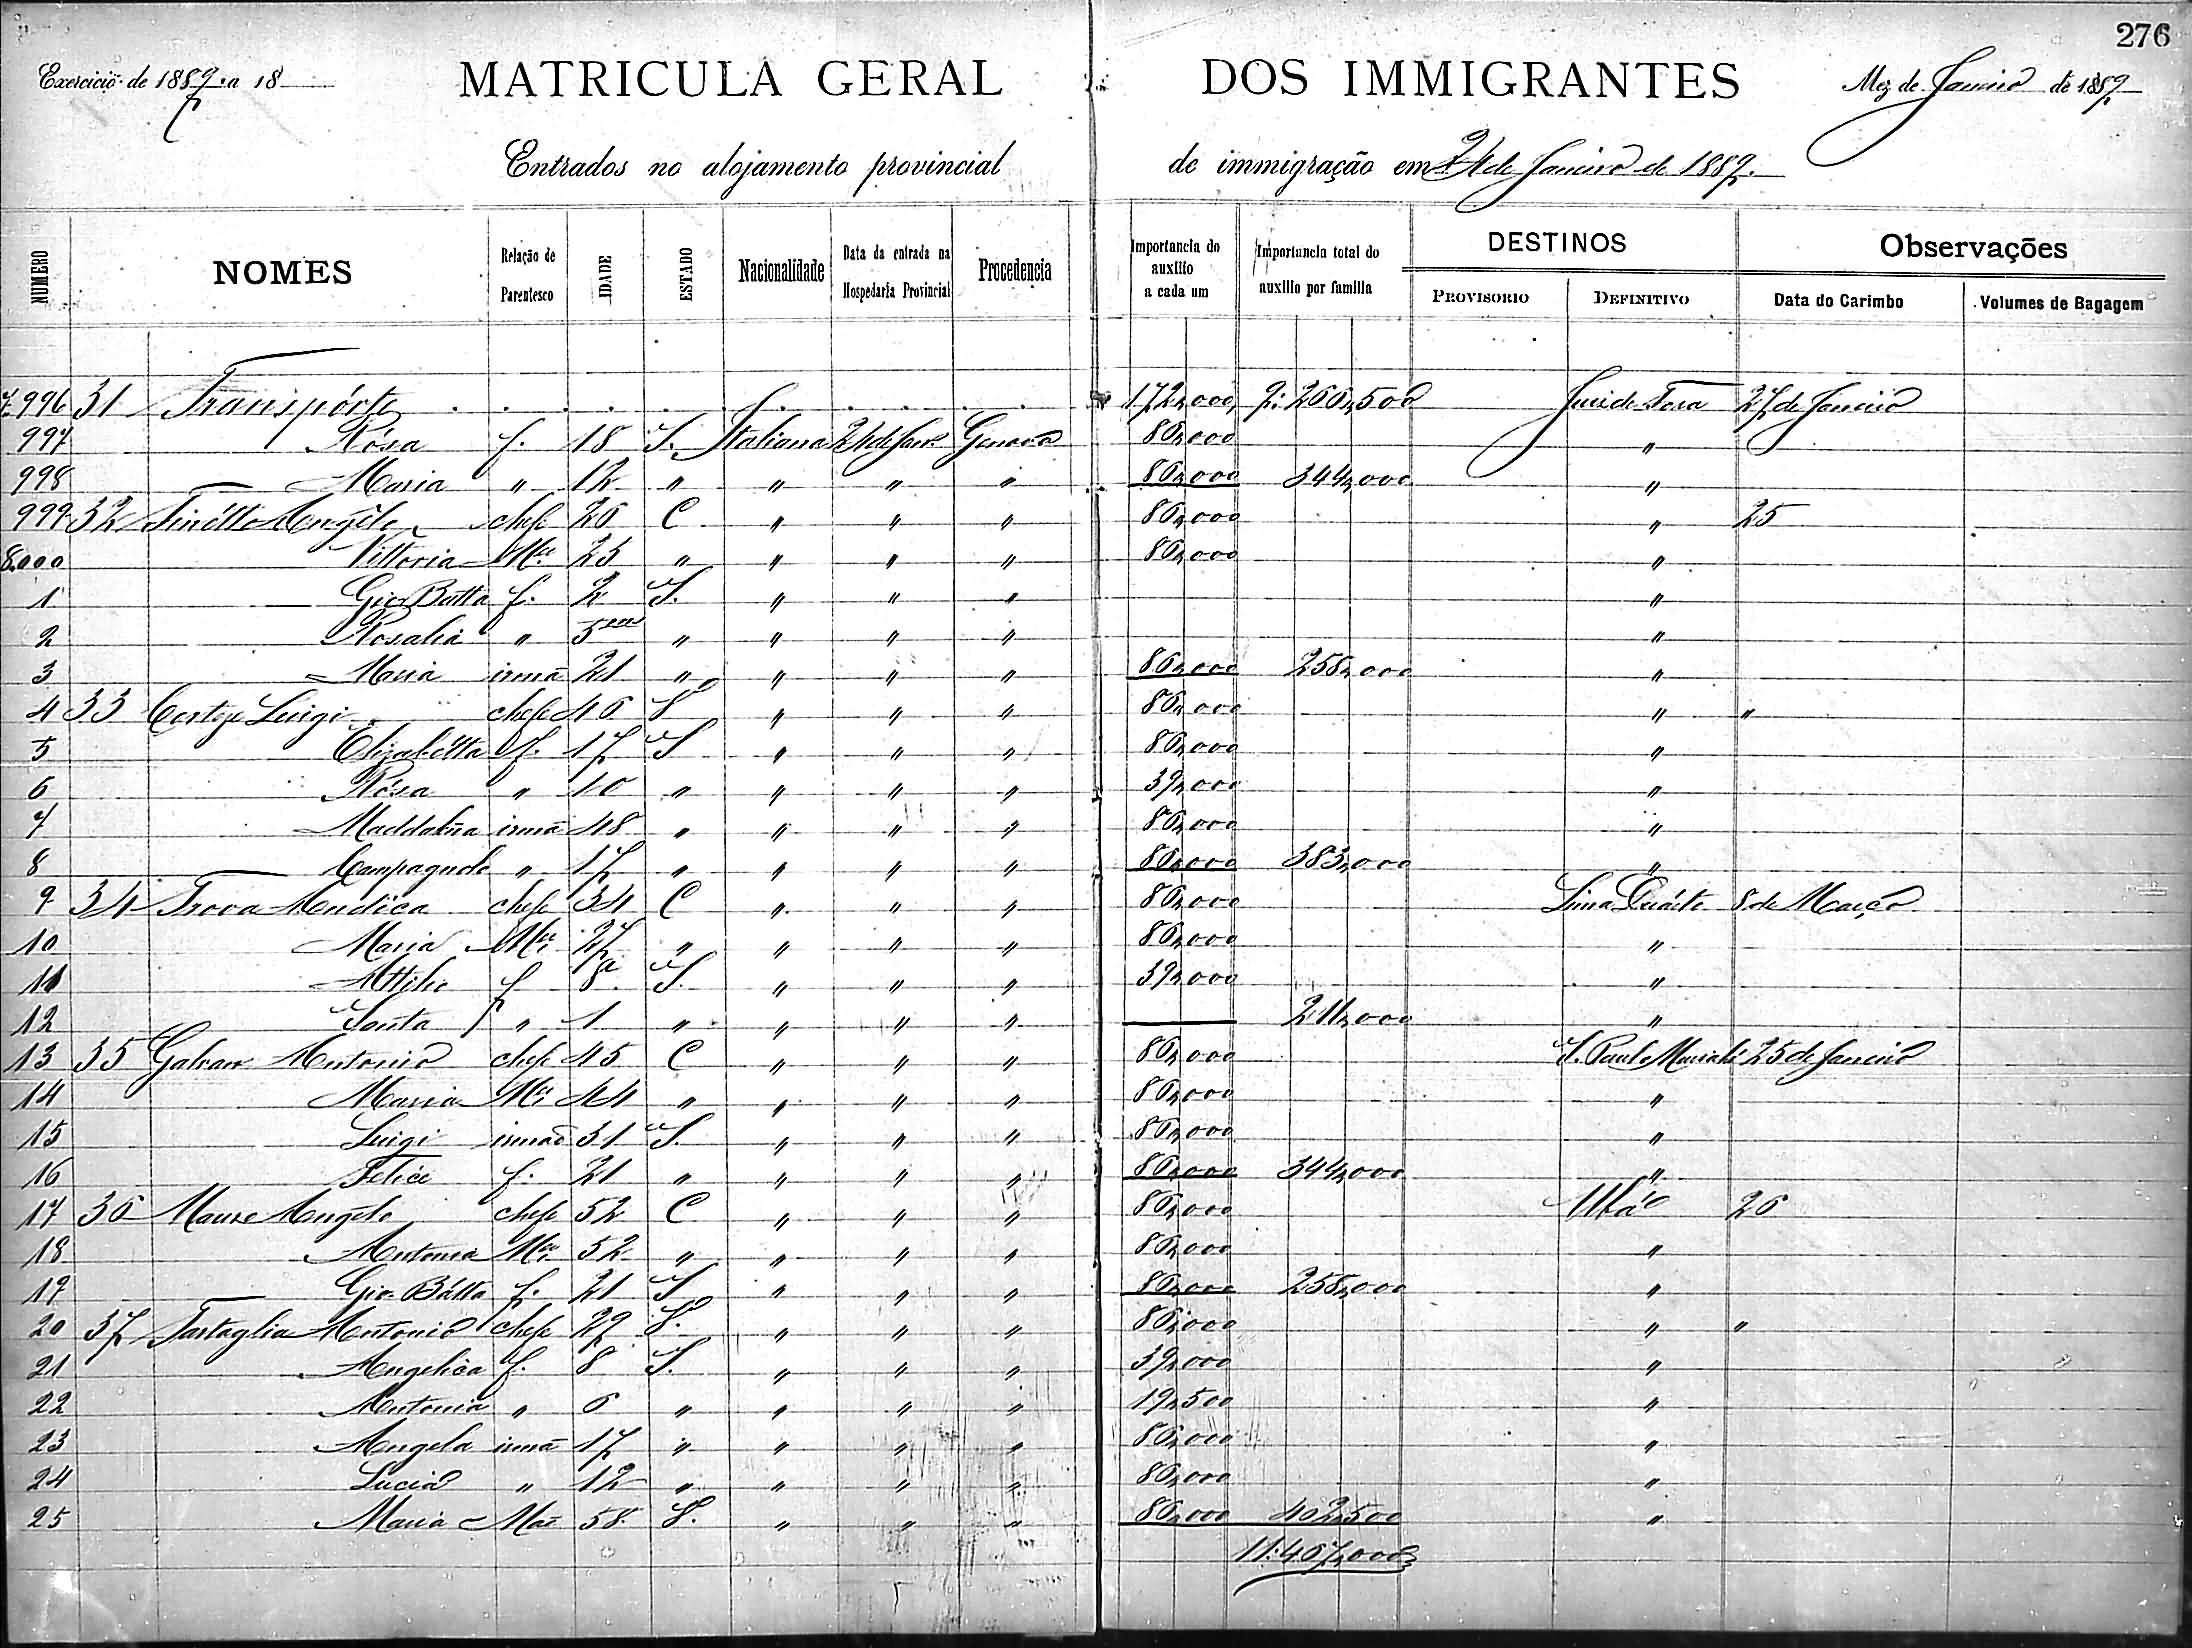 276
Exercicio de 1889 a 18
MATRICULA GERAL DOS IMMIGRANTES
Mez de Janeiro de 1889
Entrados no alojamento provincial de immigração em 24 de Janeiro de 1889.
NUMERO NOMES Relação de Parentesco IDADE ESTADO Nacionalidade Data da entrada na Hospedaria Provincial Procedencia Importancia do auxilio a cada um Importancia total do auxilio por familia DESTINOS PROVISORIO DEFINITIVO Observações Data do Carimbo Volumes de Bagagem
7.996 31 Transpórte 172,000 9:266,500 Juiz de Fora 27 de Janeiro
997 Rósa f. 18 S. Italiana 24 de Janr. Genova 86,000 "
998 Maria " 12 " " " " 86,000 344,000 "
999 32 Angelo chefe 26 C " " " 86,000 " 25
8.000 Vittoria Mer. 25 " " " " 86,000 "
1 Gio Batta f. 2 S. " " " "
2 Rosalia " 5 " " " " "
3 Maria irmã 21 " " " " 86,000 258,000 "
4 33 Luigi chefe 46 " " " 86,000 " "
5 Elizabétta f. 17 S " " " 86,000 "
6 Rósa " 10 " " " " 39,000 "
7 irmã 48 " " " " 86,000 "
8 Campagnola " 17 " " " " 86,000 383,000 "
9 34 chefe 34 C " " " 86,000 Lima Duárte 8 de Março
10 Maria Mer. 27 " " " " 86,000 "
11 Attilio f 8a S. " " " 39,000 "
12 Santa " 1 " " " " 211,000 "
13 35 Galvan Antonio chefe 45 C " " " 86,000 S. Paulo Muriahé 25 de Janeiro
14 Maria Mer. 44 " " " " 86,000 "
15 Luigi irmão 31 S. " " " 86,000 "
16 Felice f. 21 " " " " 86,000 344,000 "
17 36 Angelo chefe 52 C " " " 86,000 Ubá 26
18 Antonia Mer. 52 " " " " 86,000 "
19 Gio. Bátta f. 21 S " " " 86,000 258,000 "
20 37 Tartaglia Antonio chefe 29 " " " 86,000 " "
21 Angelica f. 8 S. " " " 39,000 "
22 Antonia " 6 " " " " 19,500 "
23 Angela irmã 17 " " " " 86,000 "
24 Lucia " 12 " " " " 86,000 "
25 Maria Mãe 58. " " " 86,000 402,500 "
11:467,000